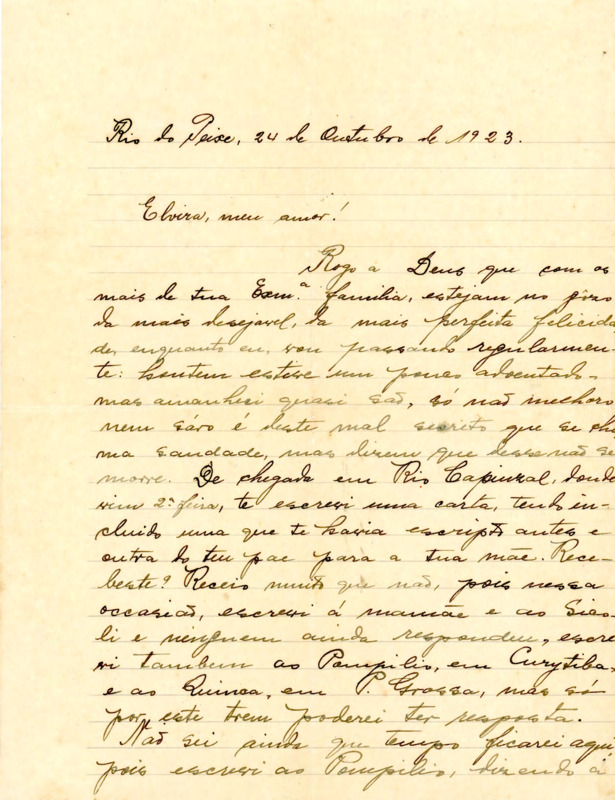 Rio do Peixe, 24 de Outubro de 1923.
Elvira, meu amor!
Rogo a Deus que com os
mais de tua Exmª. familia, estejam no gôzo
da mais desejavel, da mais perfeita felicida
de, enquanto eu, vou passando regularmen-
te: hontem estive um pouco adoentado-
mas amanheci quasi saõ, só naõ melhoro
nem sáro é deste mal secreto que se cha
ma saudade, mas dizem que desse naõ se
morre. De chegada em Rio Capinzal, donde
vim 2ª feira, te escrevi uma carta, tendo in-
cluido uma que te havia escripto antes e
outra do teu pae para a tua mãe. Rece-
beste? Receio muito que naõ, pois nessa
occasiaõ, escrevi á mamãe e ao
e ninguem ainda respondeu, escre
vi tambem ao Pompilio, em Curytiba,
e ao Quinca, em P. Grossa, mas só
por este trem poderei ter resposta.
Naõ sei ainda que tempo ficarei aqui,
pois escrevi ao Pompilio, dizendo á